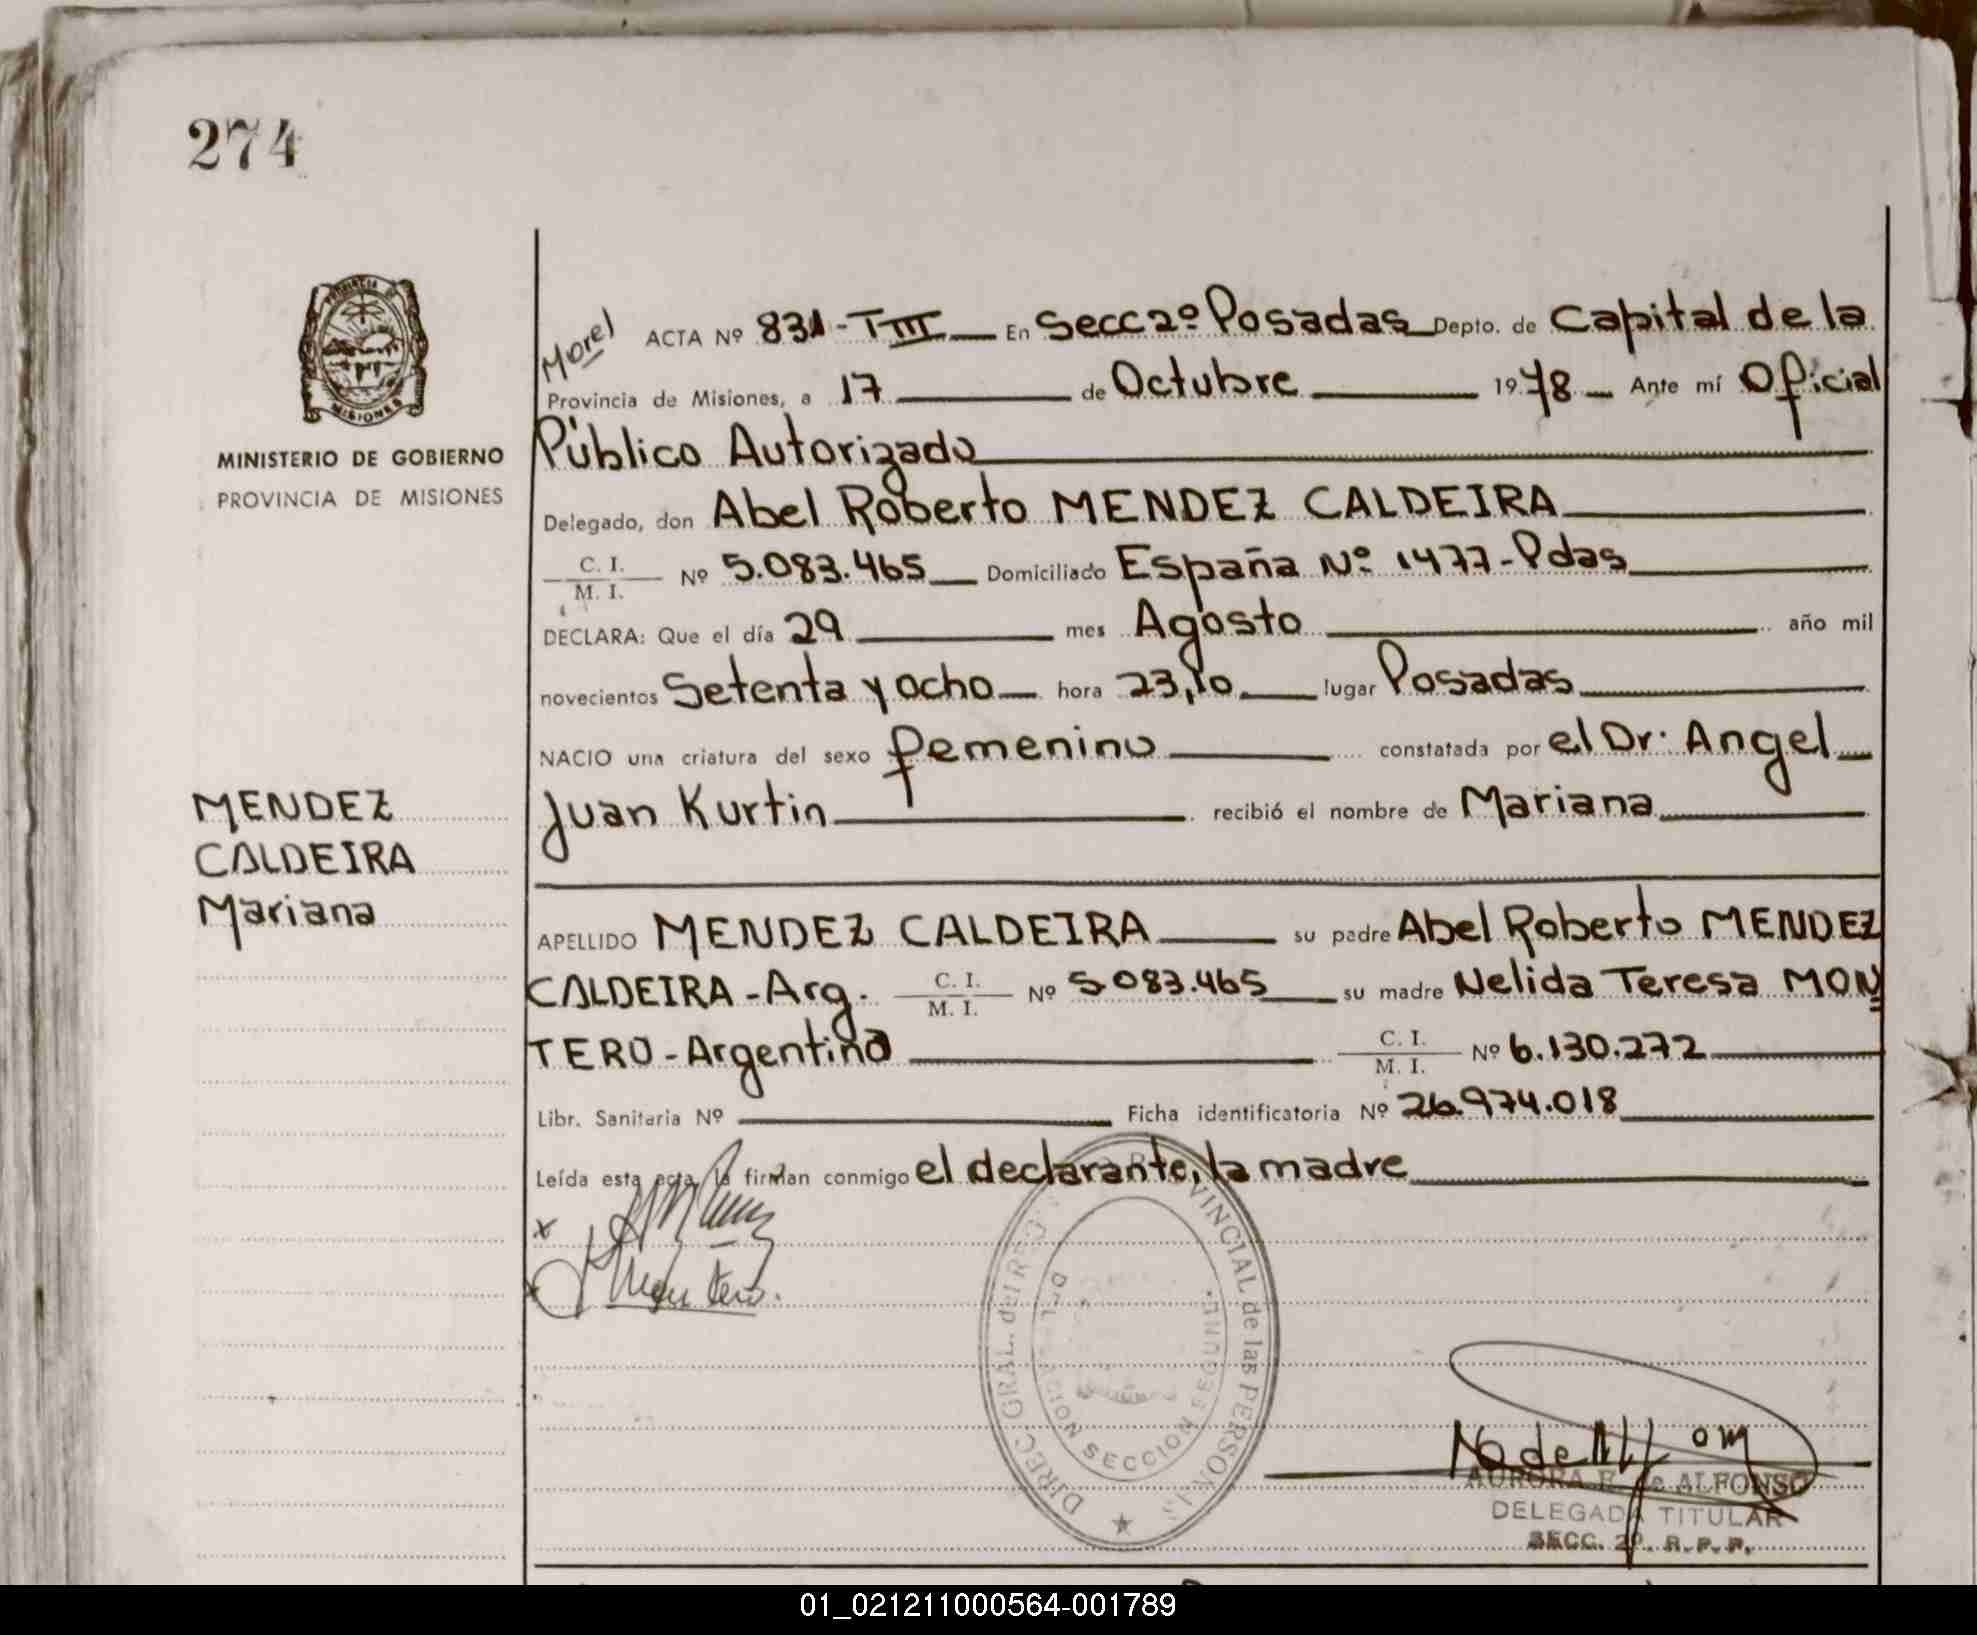 274
PROVINCIA DE
MISIONES
MINISTERIO DE GOBIERNO
PROVINCIA DE MISIONES
MENDEZ
CALDEIRA
Mariana
Morel
ACTA Nº 831-TIII En Secc 2º Posadas Depto. de Capital de la
Provincia de Misiones, a 17 de Octubre 1978 Ante mí Oficial
Público Autorizado
Delegado, don Abel Roberto MENDEZ CALDEIRA
C. I.
M. I. Nº 5.083.465 Domiciliado España Nº 1477-Pdas
DECLARA: Que el día 29 mes Agosto año mil
novecientos Setenta y ocho hora 23,10 lugar Posadas
NACIO una criatura del sexo femenino constatada por el Dr. Angel
Juan Kurtin recibió el nombre de Mariana
APELLIDO MENDEZ CALDEIRA su padre Abel Roberto MENDEZ
CALDEIRA-Arg. C. I. M. I. Nº 5.083.465 su madre Nelida Teresa MON
TERO-Argentina C. I. M. I. Nº 6.130.272
Libr. Sanitaria Nº Ficha identificatoria Nº 26.974.018
Leída esta acta la firman conmigo el declarante, la madre
x
DIREC GRAL. del VINCIAL de las PERSONAS
SECCION SEGUNDA
AURORA de ALFONSO
DELEGADA TITULAR
SECC. 2º. R.P.P.
01_021211000564-001789